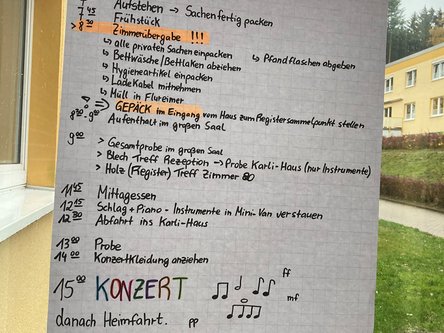 7 Aufstehen → Sachen fertig packen
7 45 Frühstück
> 8 30 Zimmerübergabe !!!
↳ alle privaten Sachen einpacken ↳ Pfandflaschen abgeben
↳ Bettwäsche/Bettlaken abziehen
↳ Hygieneartikel einpacken
↳ Ladekabel mitnehmen
↳ Müll in Flureimer
⇒ GEPÄCK im Eingang vom Haus zum Registersammelpunkt stellen
Aufenthalt im großen Saal
9 00 > Gesamtprobe im großen Saal
> Blech Treff Rezeption → Probe Karli-Haus (nur Instrumente)
> Holz (Register) Treff Zimmer
11 45 Mittagessen
12 15 Schlag + Piano - Instrumente in Mini-Van verstauen
12 30 Abfahrt ins Karli-Haus
13 00 Probe
14 00 Konzertkleidung anziehen
15 00 KONZERT ff
mf
danach Heimfahrt. pp